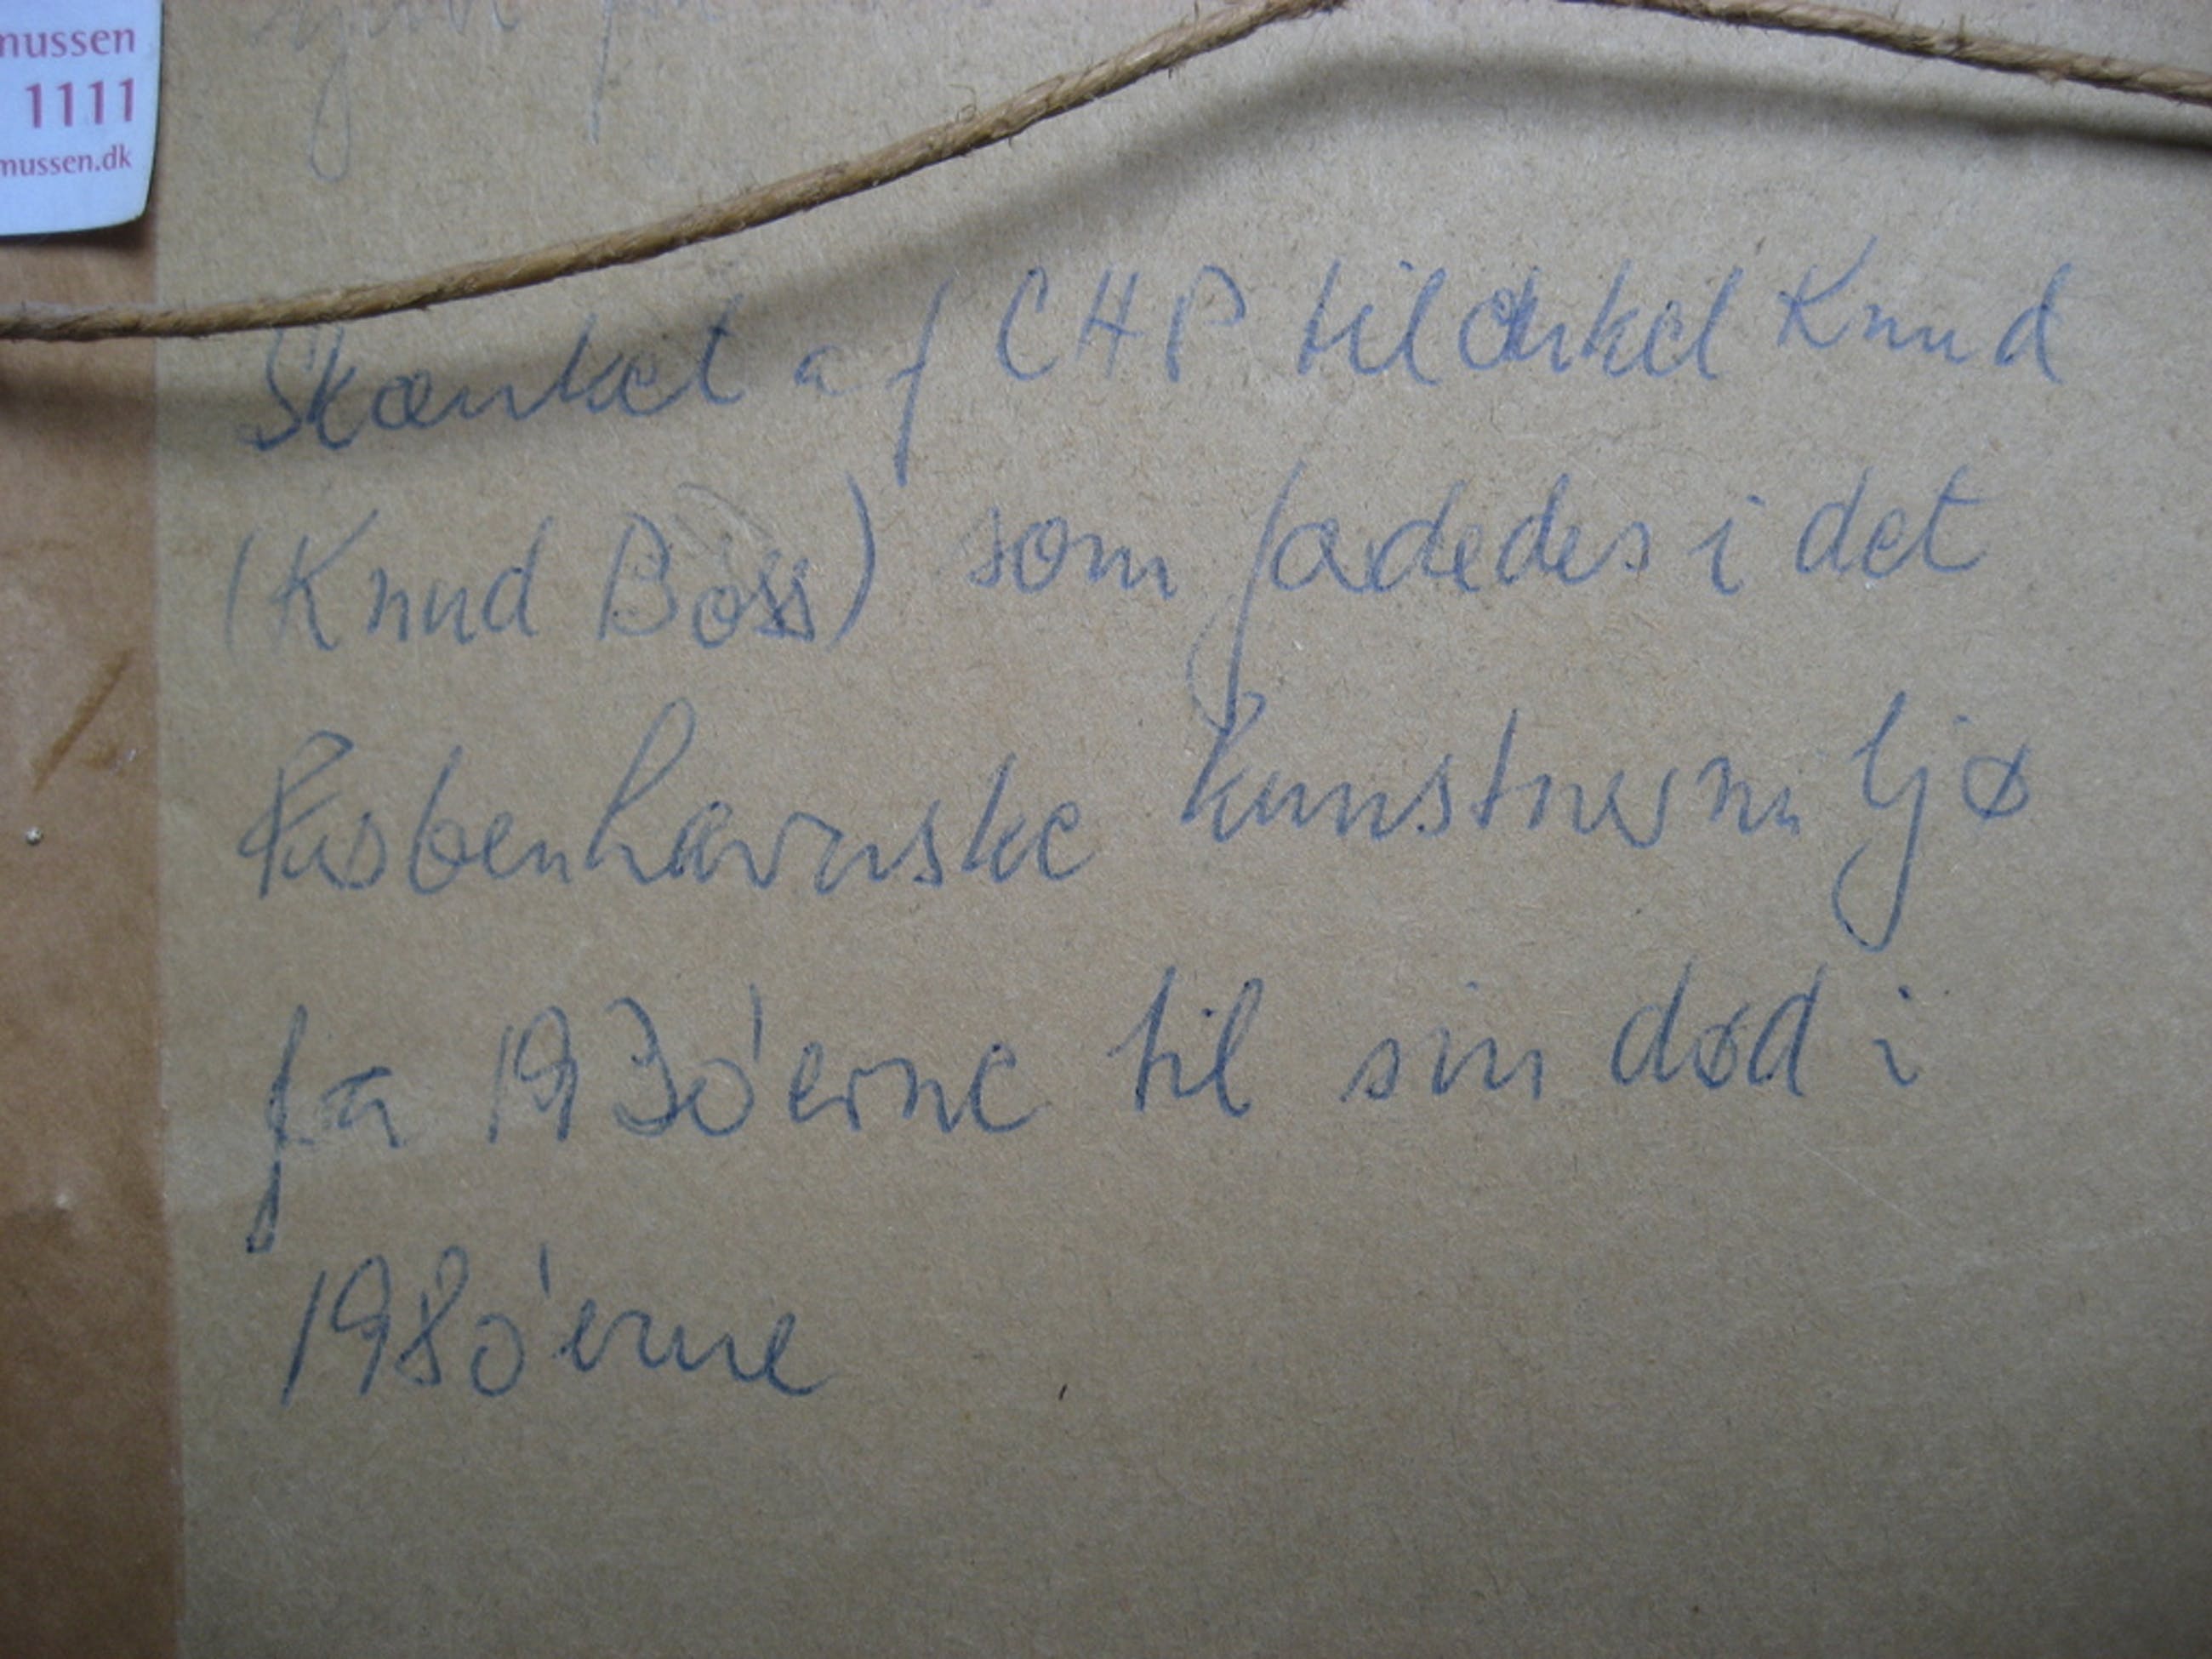 mussen
1111
mussen.dk
Skænket af CHP til onkel Knud
(Knud Boss) som færdedes i det
Københavnske kunstnermiljø
fra 1930'erne til sin død i
1980'erne